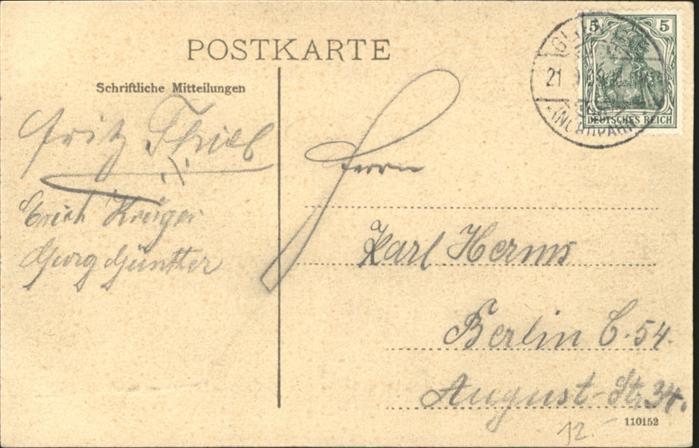 POSTKARTE
Schriftliche Mitteilungen
Fritz Thiel
Erich Krüger
Georg Günther
5 5
21
DEUTSCHES REICH
Herrn
Karl Herms
Berlin C. 54.
August-Str. 34.
110152
12